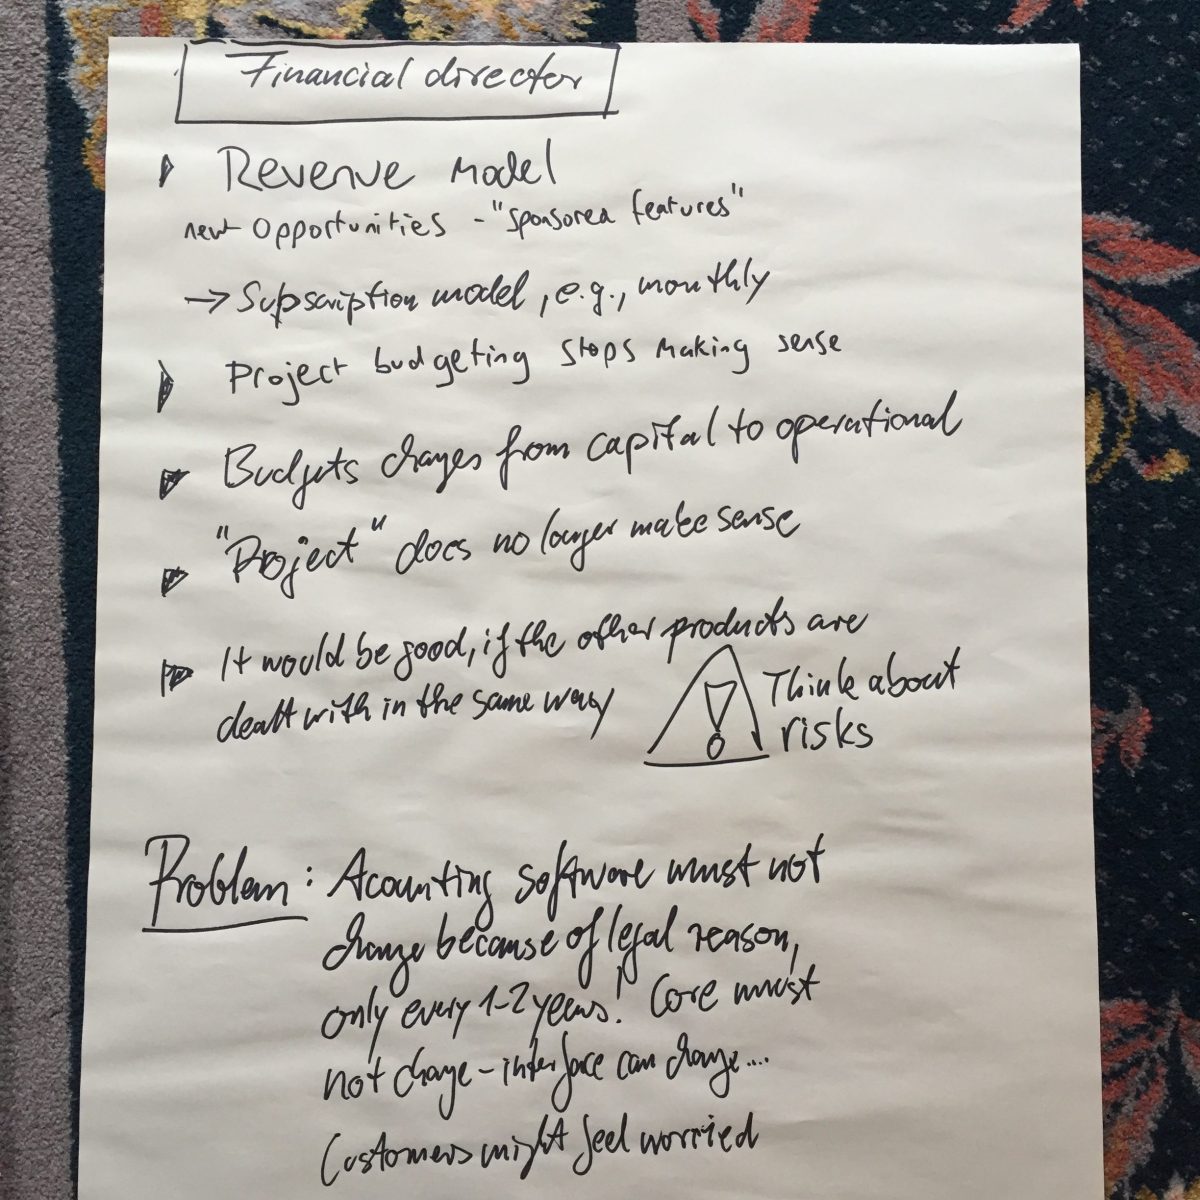 Financial director
Revenue Model
new opportunities - "sponsored features"
→ Subscription model, e.g., monthly
Project budgeting stops making sense
Budgets changes from capital to operational
"Project" does no longer make sense
It would be good, if the other products are
dealt with in the same way
Think about
risks
Problem: Acounting software must not
change because of legal reason,
only every 1-2 years! Core must
not change - interface can change....
Customers might feel worried